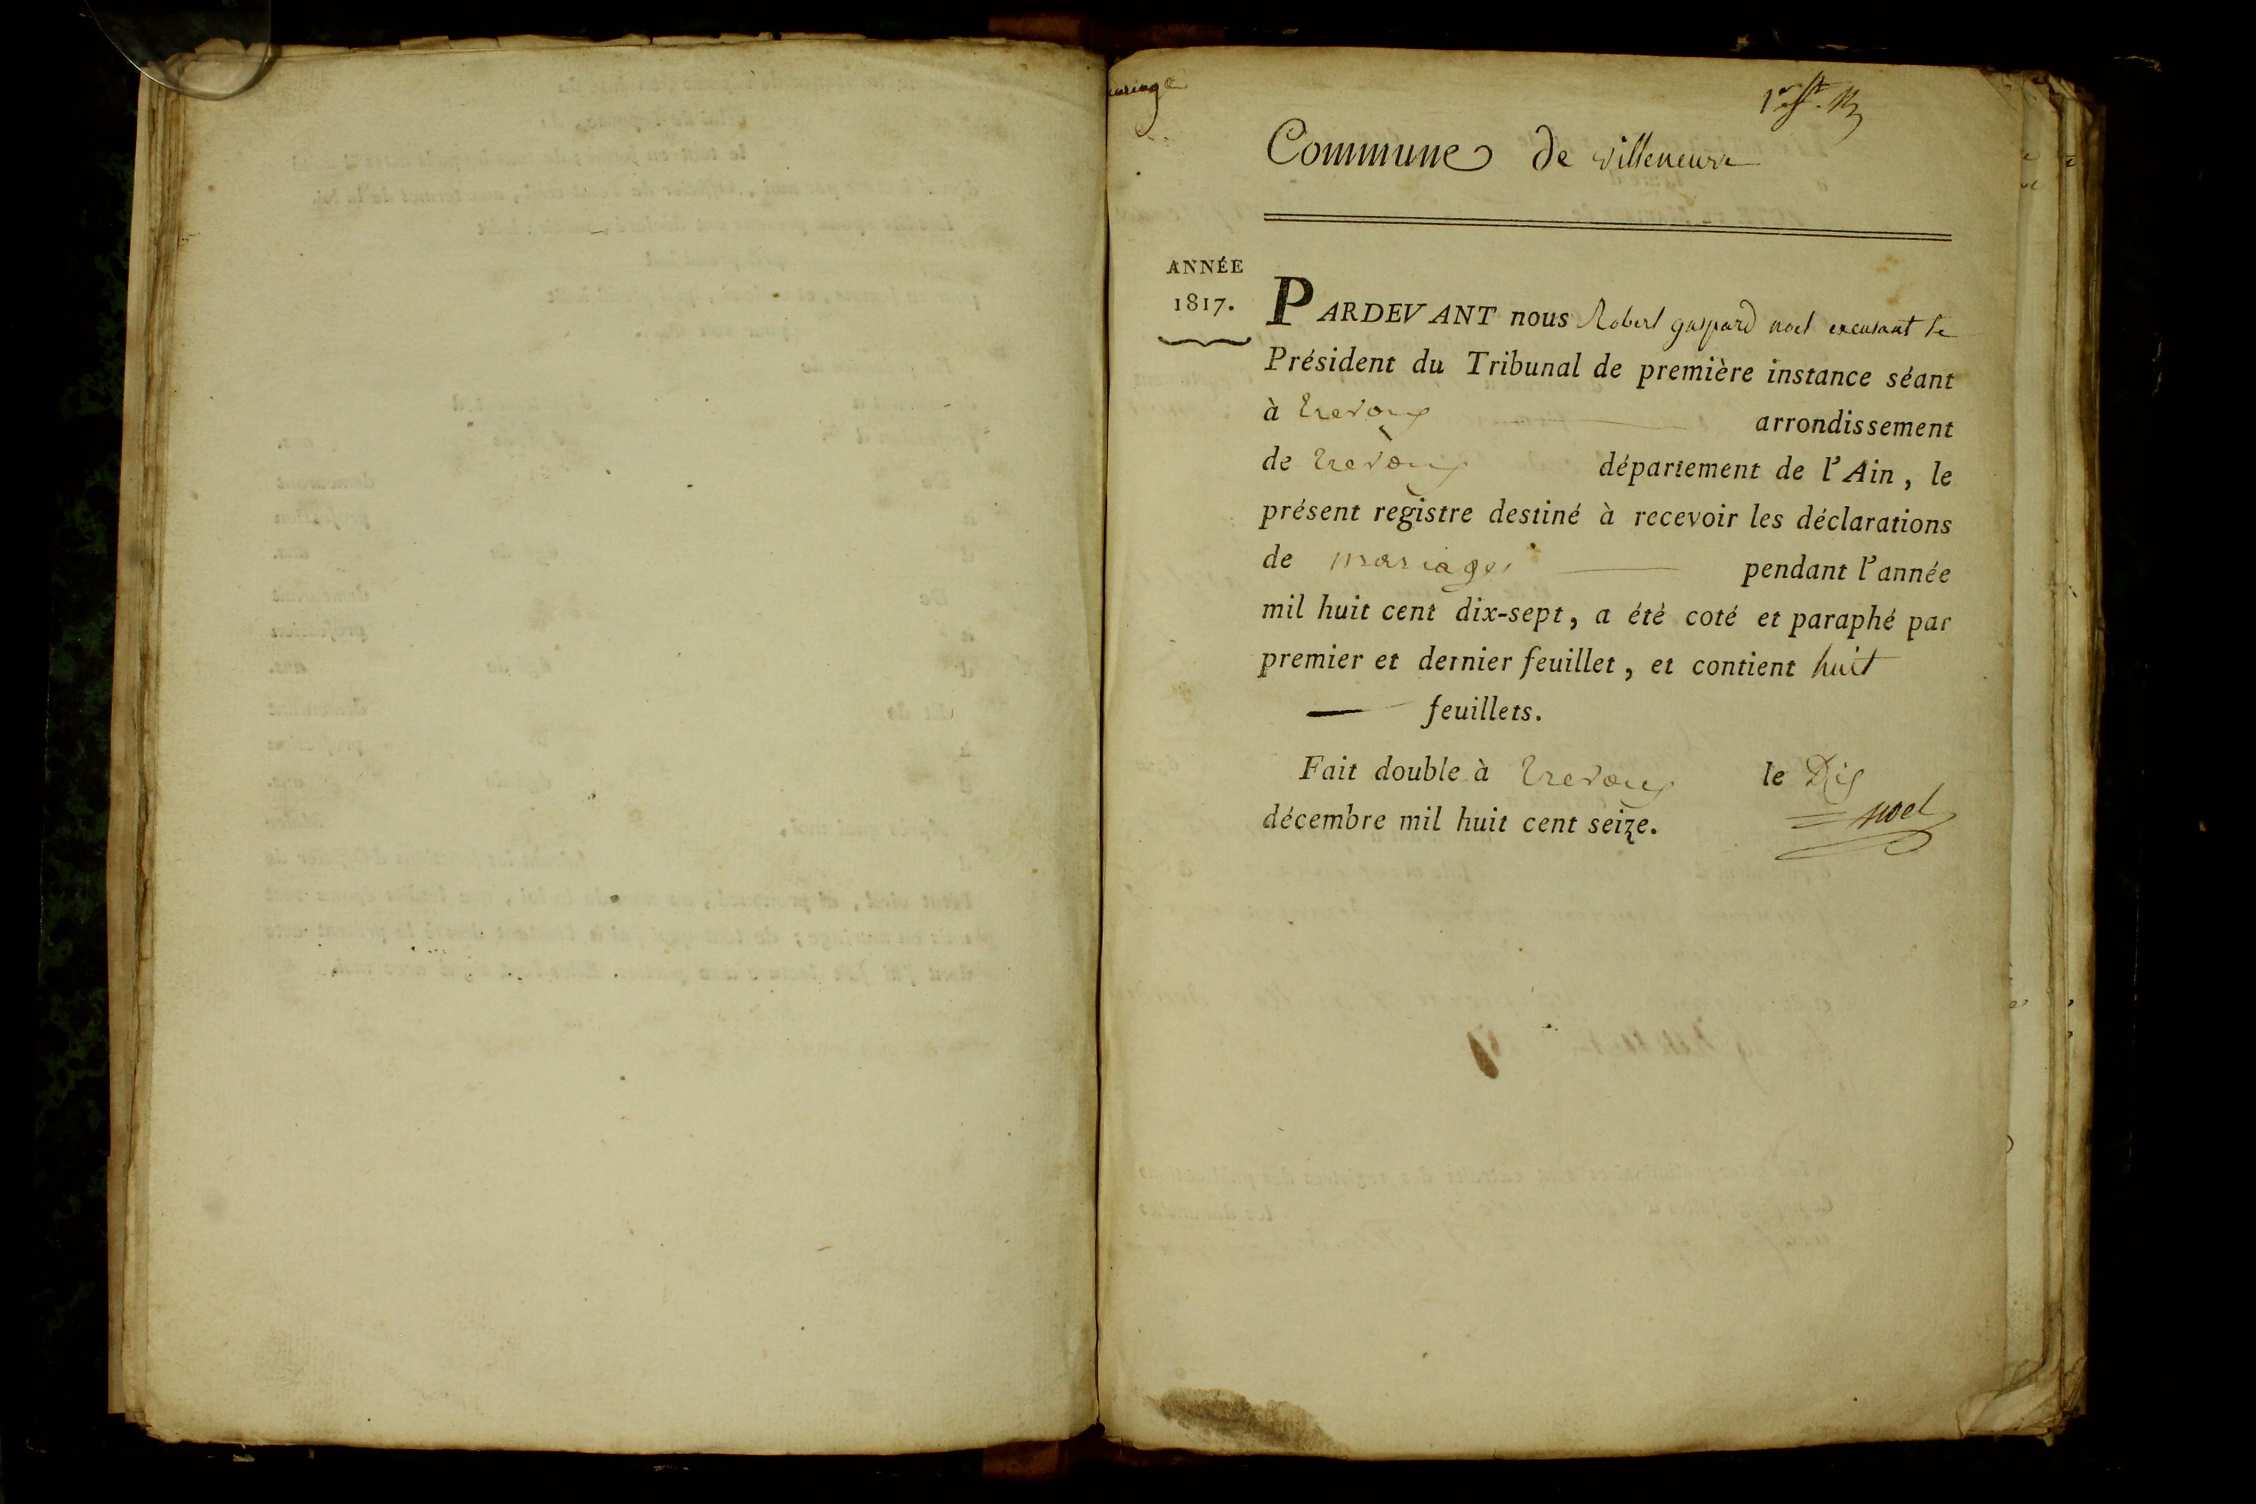 mariage
Commune de villeneuve
ANNÉE
1817.
PARDEVANT nous Robert gaspard noel excusant le
Président du Tribunal de première instance séant
à Trevoux arrondissement
de Trevoux département de l'Ain, le
présent registre destiné à recevoir les déclarations
de mariages pendant l'année
mil huit cent dix-sept, a été coté et paraphé par
premier et dernier feuillet, et contient huit
feuillets.
Fait double à Trevoux le Dix
décembre mil huit cent seize.
noel